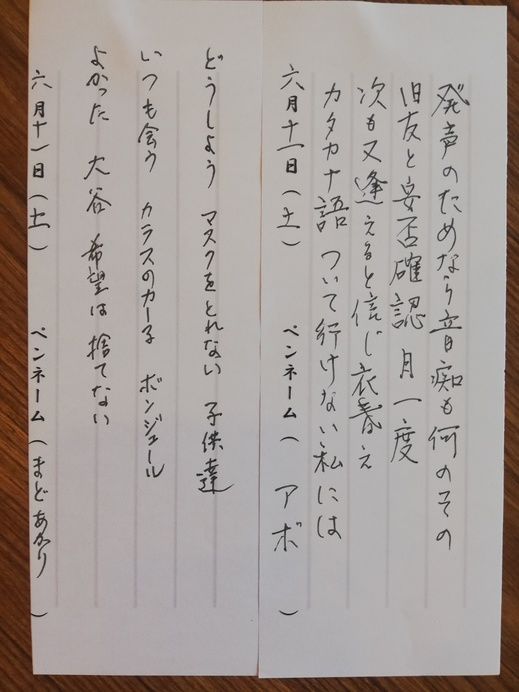 発声のためなら音痴も何のその
旧友と安否確認 月一度
次も又逢えると信じ衣替え
カタカナ語 ついて行けない私には
六月十一日(土) ペンネーム( アボ )
どうしよう マスクをとれない 子供達
いつも会う カラスのカー子 ボンジュール
よかった 大谷 希望は 捨てない
六月十一日(土) ペンネーム(まどあかり )